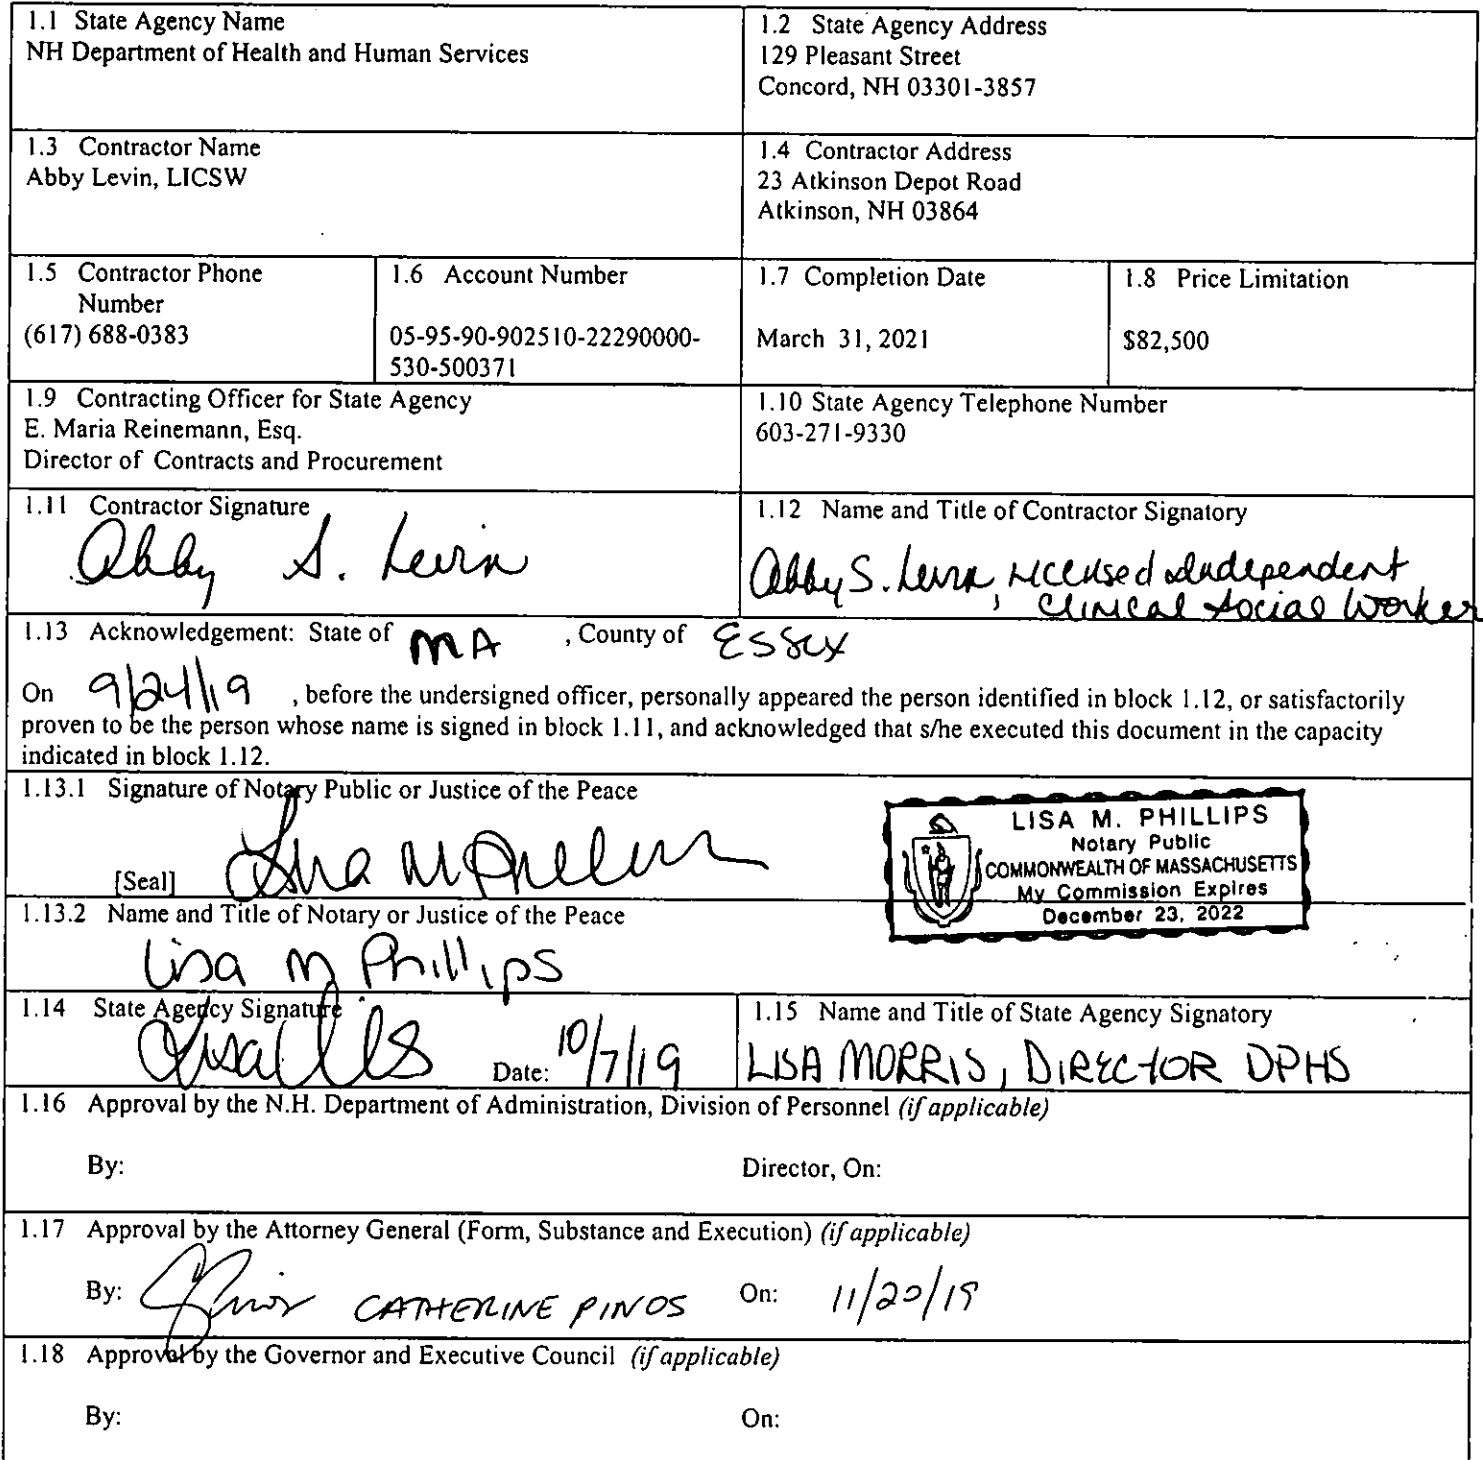 1.1 State Agency Name
NH Department of Health and Human Services
1.2 State Agency Address
129 Pleasant Street
Concord, NH 03301-3857
1.3 Contractor Name
Abby Levin, LICSW
1.4 Contractor Address
23 Atkinson Depot Road
Atkinson, NH 03864
1.5 Contractor Phone
Number
(617) 688-0383
1.6 Account Number
05-95-90-902510-22290000-
530-500371
1.7 Completion Date
March 31, 2021
1.8 Price Limitation
$82,500
1.9 Contracting Officer for State Agency
E. Maria Reinemann, Esq.
Director of Contracts and Procurement
1.10 State Agency Telephone Number
603-271-9330
1.11 Contractor Signature
Abby S. Levin
1.12 Name and Title of Contractor Signatory
Abby S. Levin, Licensed Independent
Clinical Social Worker
1.13 Acknowledgement: State of MA , County of Essex
On 9/24/19 , before the undersigned officer, personally appeared the person identified in block 1.12, or satisfactorily
proven to be the person whose name is signed in block 1.11, and acknowledged that s/he executed this document in the capacity
indicated in block 1.12.
1.13.1 Signature of Notary Public or Justice of the Peace
Lisa M Phillips
[Seal]
LISA M. PHILLIPS
Notary Public
COMMONWEALTH OF MASSACHUSETTS
My Commission Expires
December 23, 2022
1.13.2 Name and Title of Notary or Justice of the Peace
Lisa M Phillips
1.14 State Agency Signature
Date: 10/7/19
1.15 Name and Title of State Agency Signatory
LISA MORRIS, DIRECTOR DPHS
1.16 Approval by the N.H. Department of Administration, Division of Personnel (if applicable)
By: Director, On:
1.17 Approval by the Attorney General (Form, Substance and Execution) (if applicable)
By: CATHERINE PINOS On: 11/20/19
1.18 Approval by the Governor and Executive Council (if applicable)
By: On: